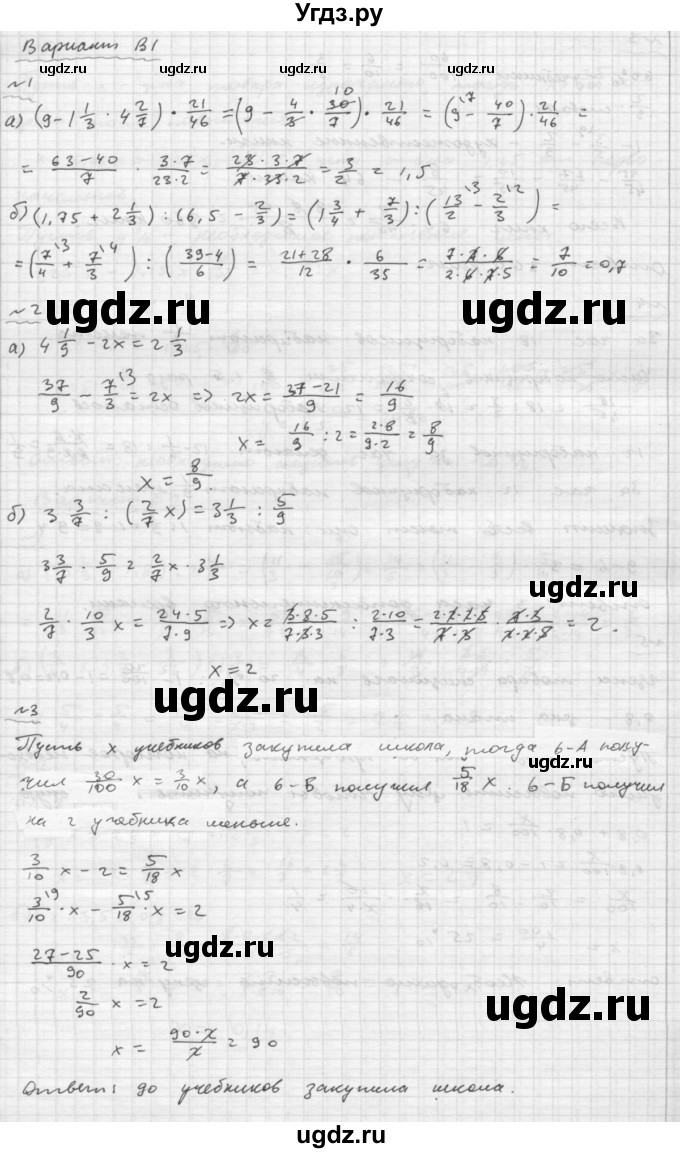 Угдз.ру
Вариант В1
ugdz.ru ugdz.ru ugdz.ru
№1
а) (9 - 1 1/3 · 4 2/7) · 21/46 = (9 - 4/3 · 30/7) · 21/46 = (9 - 40/7) · 21/46 =
= (63-40)/7 · (3·7)/(23·2) = (23·3·7)/(7·23·2) = 3/2 = 1,5
б) (1,75 + 2 1/3) : (6,5 - 2/3) = (1 3/4 + 7/3) : (13/2 - 2/3) =
= (7/4 + 7/3) : ((39-4)/6) = (21+28)/12 · 6/35 = (7·7·6)/(2·6·7·5) = 7/10 = 0,7
ugdz.ru ugdz.ru
№2
а) 4 1/9 - 2x = 2 1/3
37/9 - 7/3 = 2x => 2x = (37-21)/9 = 16/9
x = 16/9 : 2 = (2·8)/(9·2) = 8/9
x = 8/9.
ugdz.ru
б) 3 3/7 : (2/7 x) = 3 1/3 : 5/9
3 3/7 · 5/9 = 2/7 x · 3 1/3
ugdz.ru
2/7 · 10/3 x = (24·5)/(7·9) => x = (3·8·5)/(7·3·3) : (2·10)/(7·3) = (2·2·2·5)/(7·3) · (7·3)/(2·2·5) = 2.
x = 2
ugdz.ru
№3
Пусть x учебников закупила школа, тогда 6-А полу-
чил 30/100 x = 3/10 x, а 6-В получил 5/18 x. 6-Б получил
на 2 учебника меньше.
3/10 x - 2 = 5/18 x
3/10 · x - 5/18 · x = 2
ugdz.ru
(27-25)/90 · x = 2
2/90 x = 2
ugdz.ru
x = (90·2)/2 = 90
Ответ: 90 учебников закупила школа.
ugdz.ru